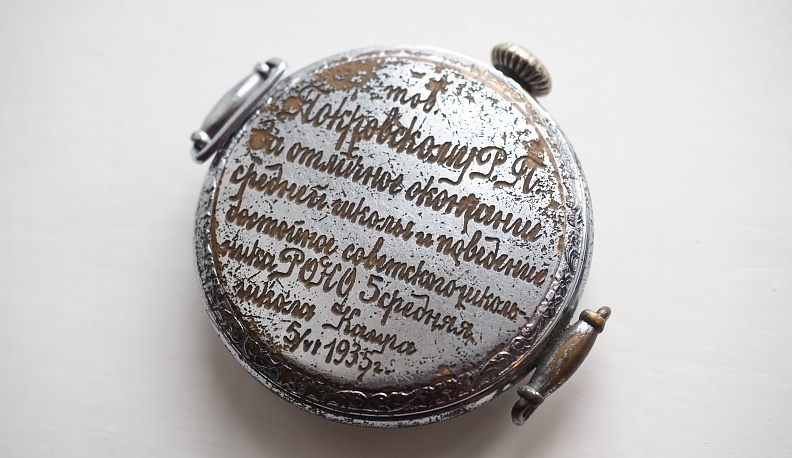 тов.
Покровскому Р.Я.
За отличное окончание
средней школы и поведение
достойное советского школь-
ника РОНО 5 средняя
школа Калуга
5/VI 1935г.